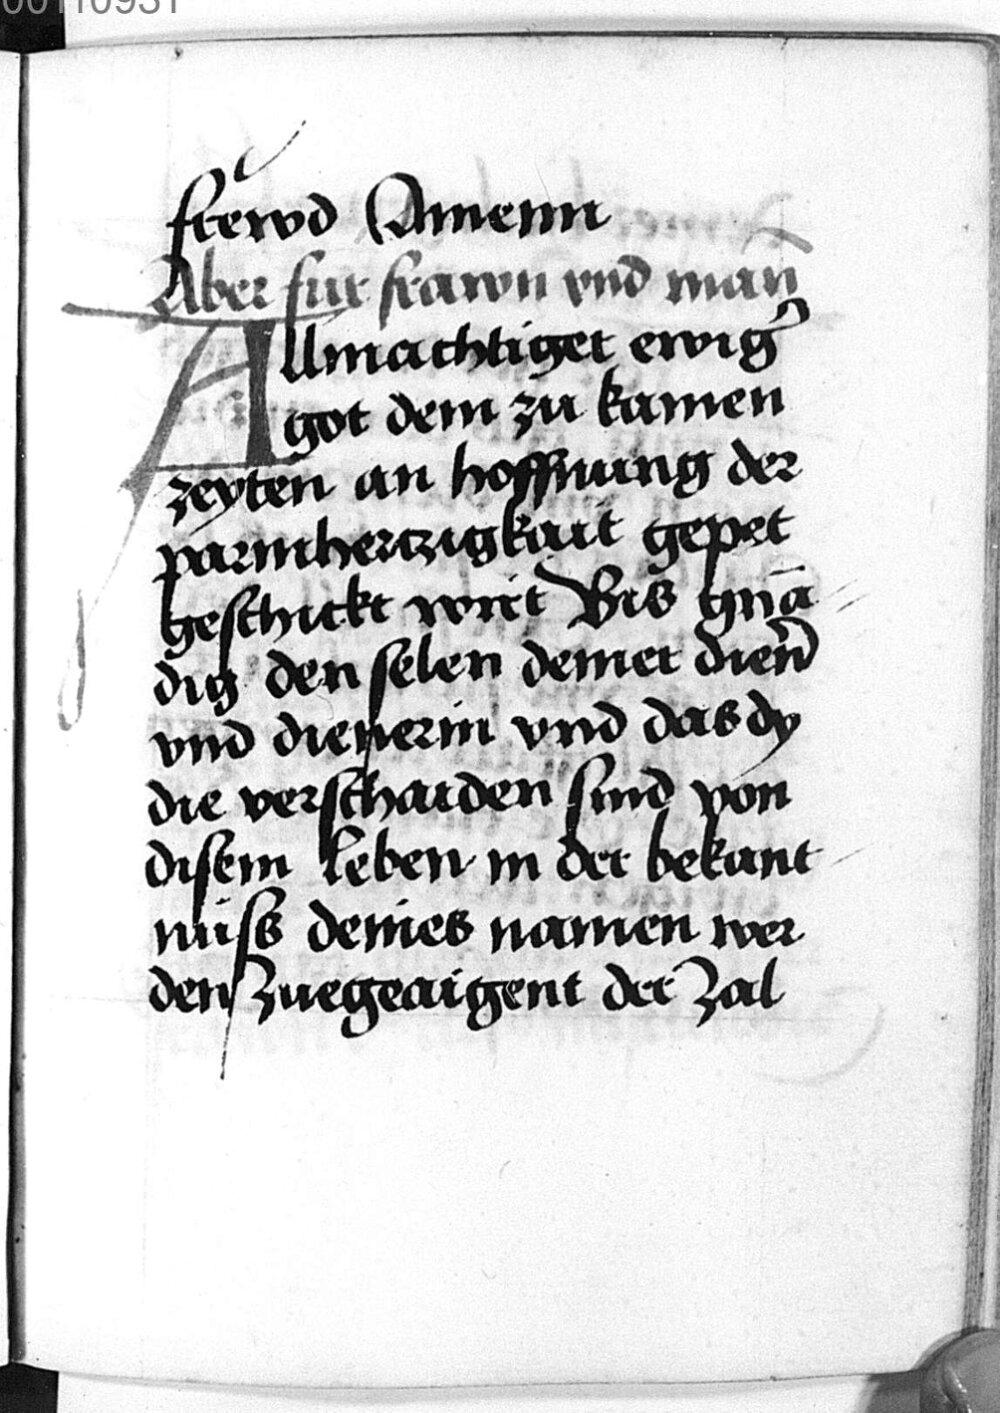 00110931
frewd Amenn
Aber fur frawn vnd man̄
Allmachtiger ewig᷒
got dem zu kamen
zeyten an hoffnung der
parmhertzigkait gepet
geschickt wirt Bis gnā
dig den selen deiner dien̄
vnd dienerin vnd das dy
die verschaiden sind von
disem leben in der bekant
nuss deines namen wer
den zuegeaigent der zal